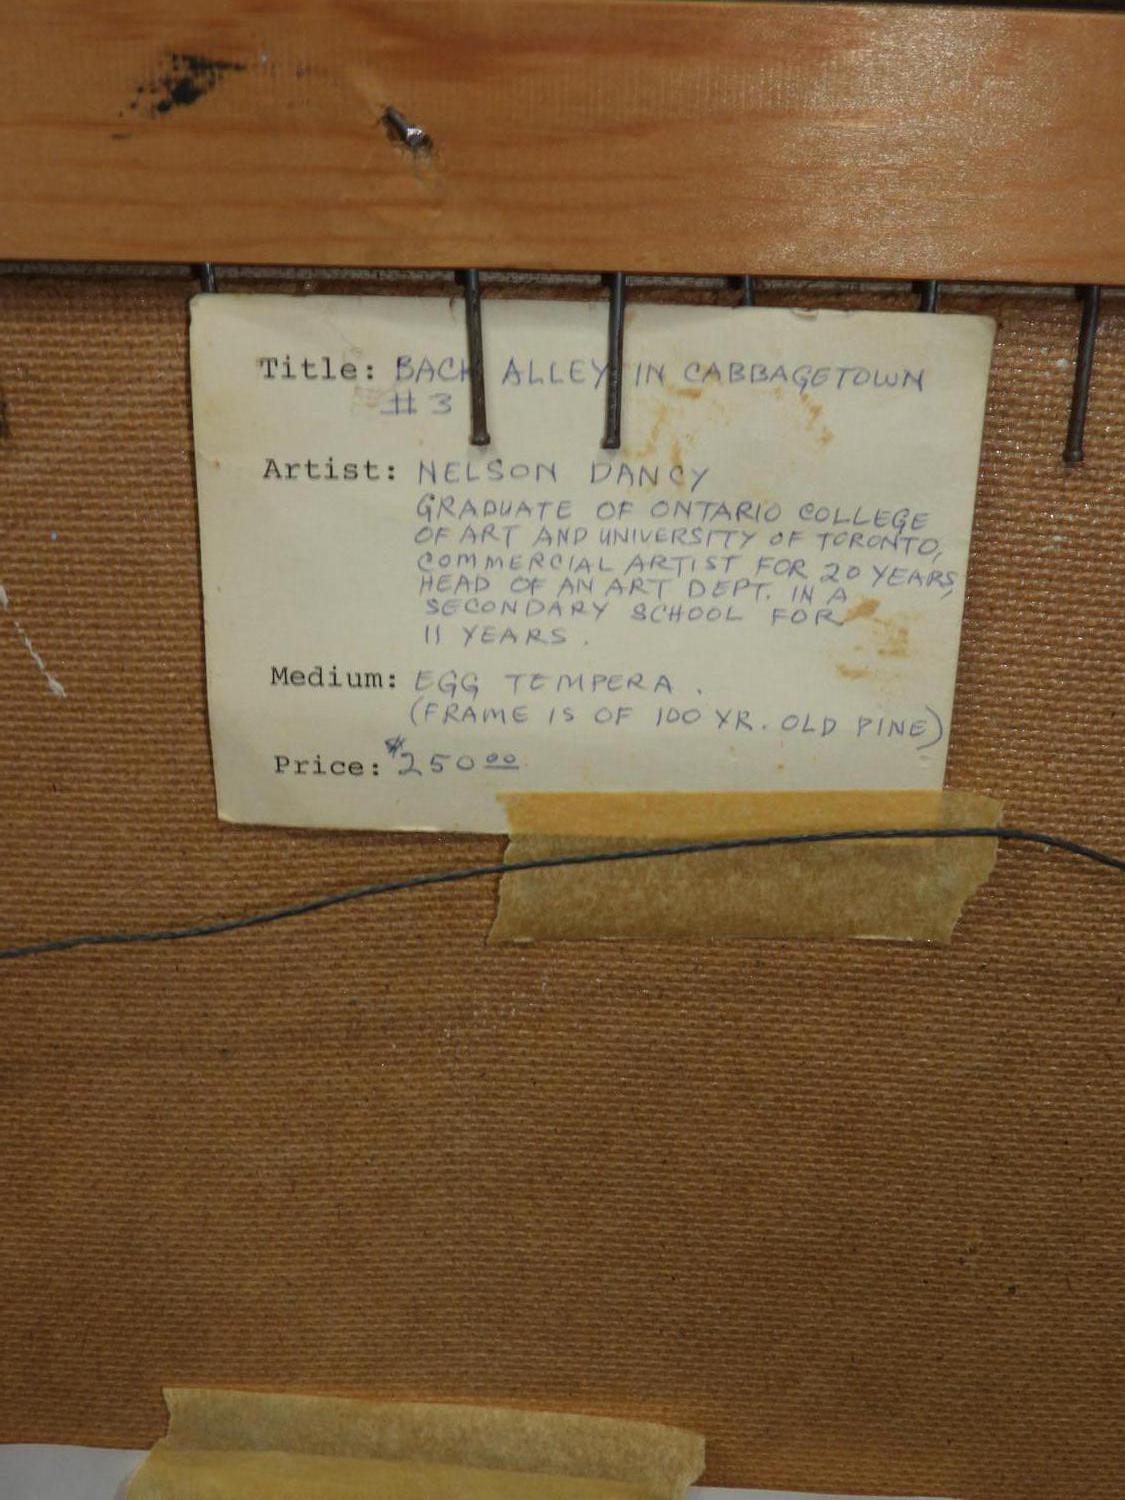 Title: BACK ALLEY IN CABBAGETOWN
# 3
Artist: NELSON DANCY
GRADUATE OF ONTARIO COLLEGE
OF ART AND UNIVERSITY OF TORONTO,
COMMERCIAL ARTIST FOR 20 YEARS,
HEAD OF AN ART DEPT. IN A
SECONDARY SCHOOL FOR
11 YEARS.
Medium: EGG TEMPERA.
(FRAME IS OF 100 YR. OLD PINE)
Price: $250.00